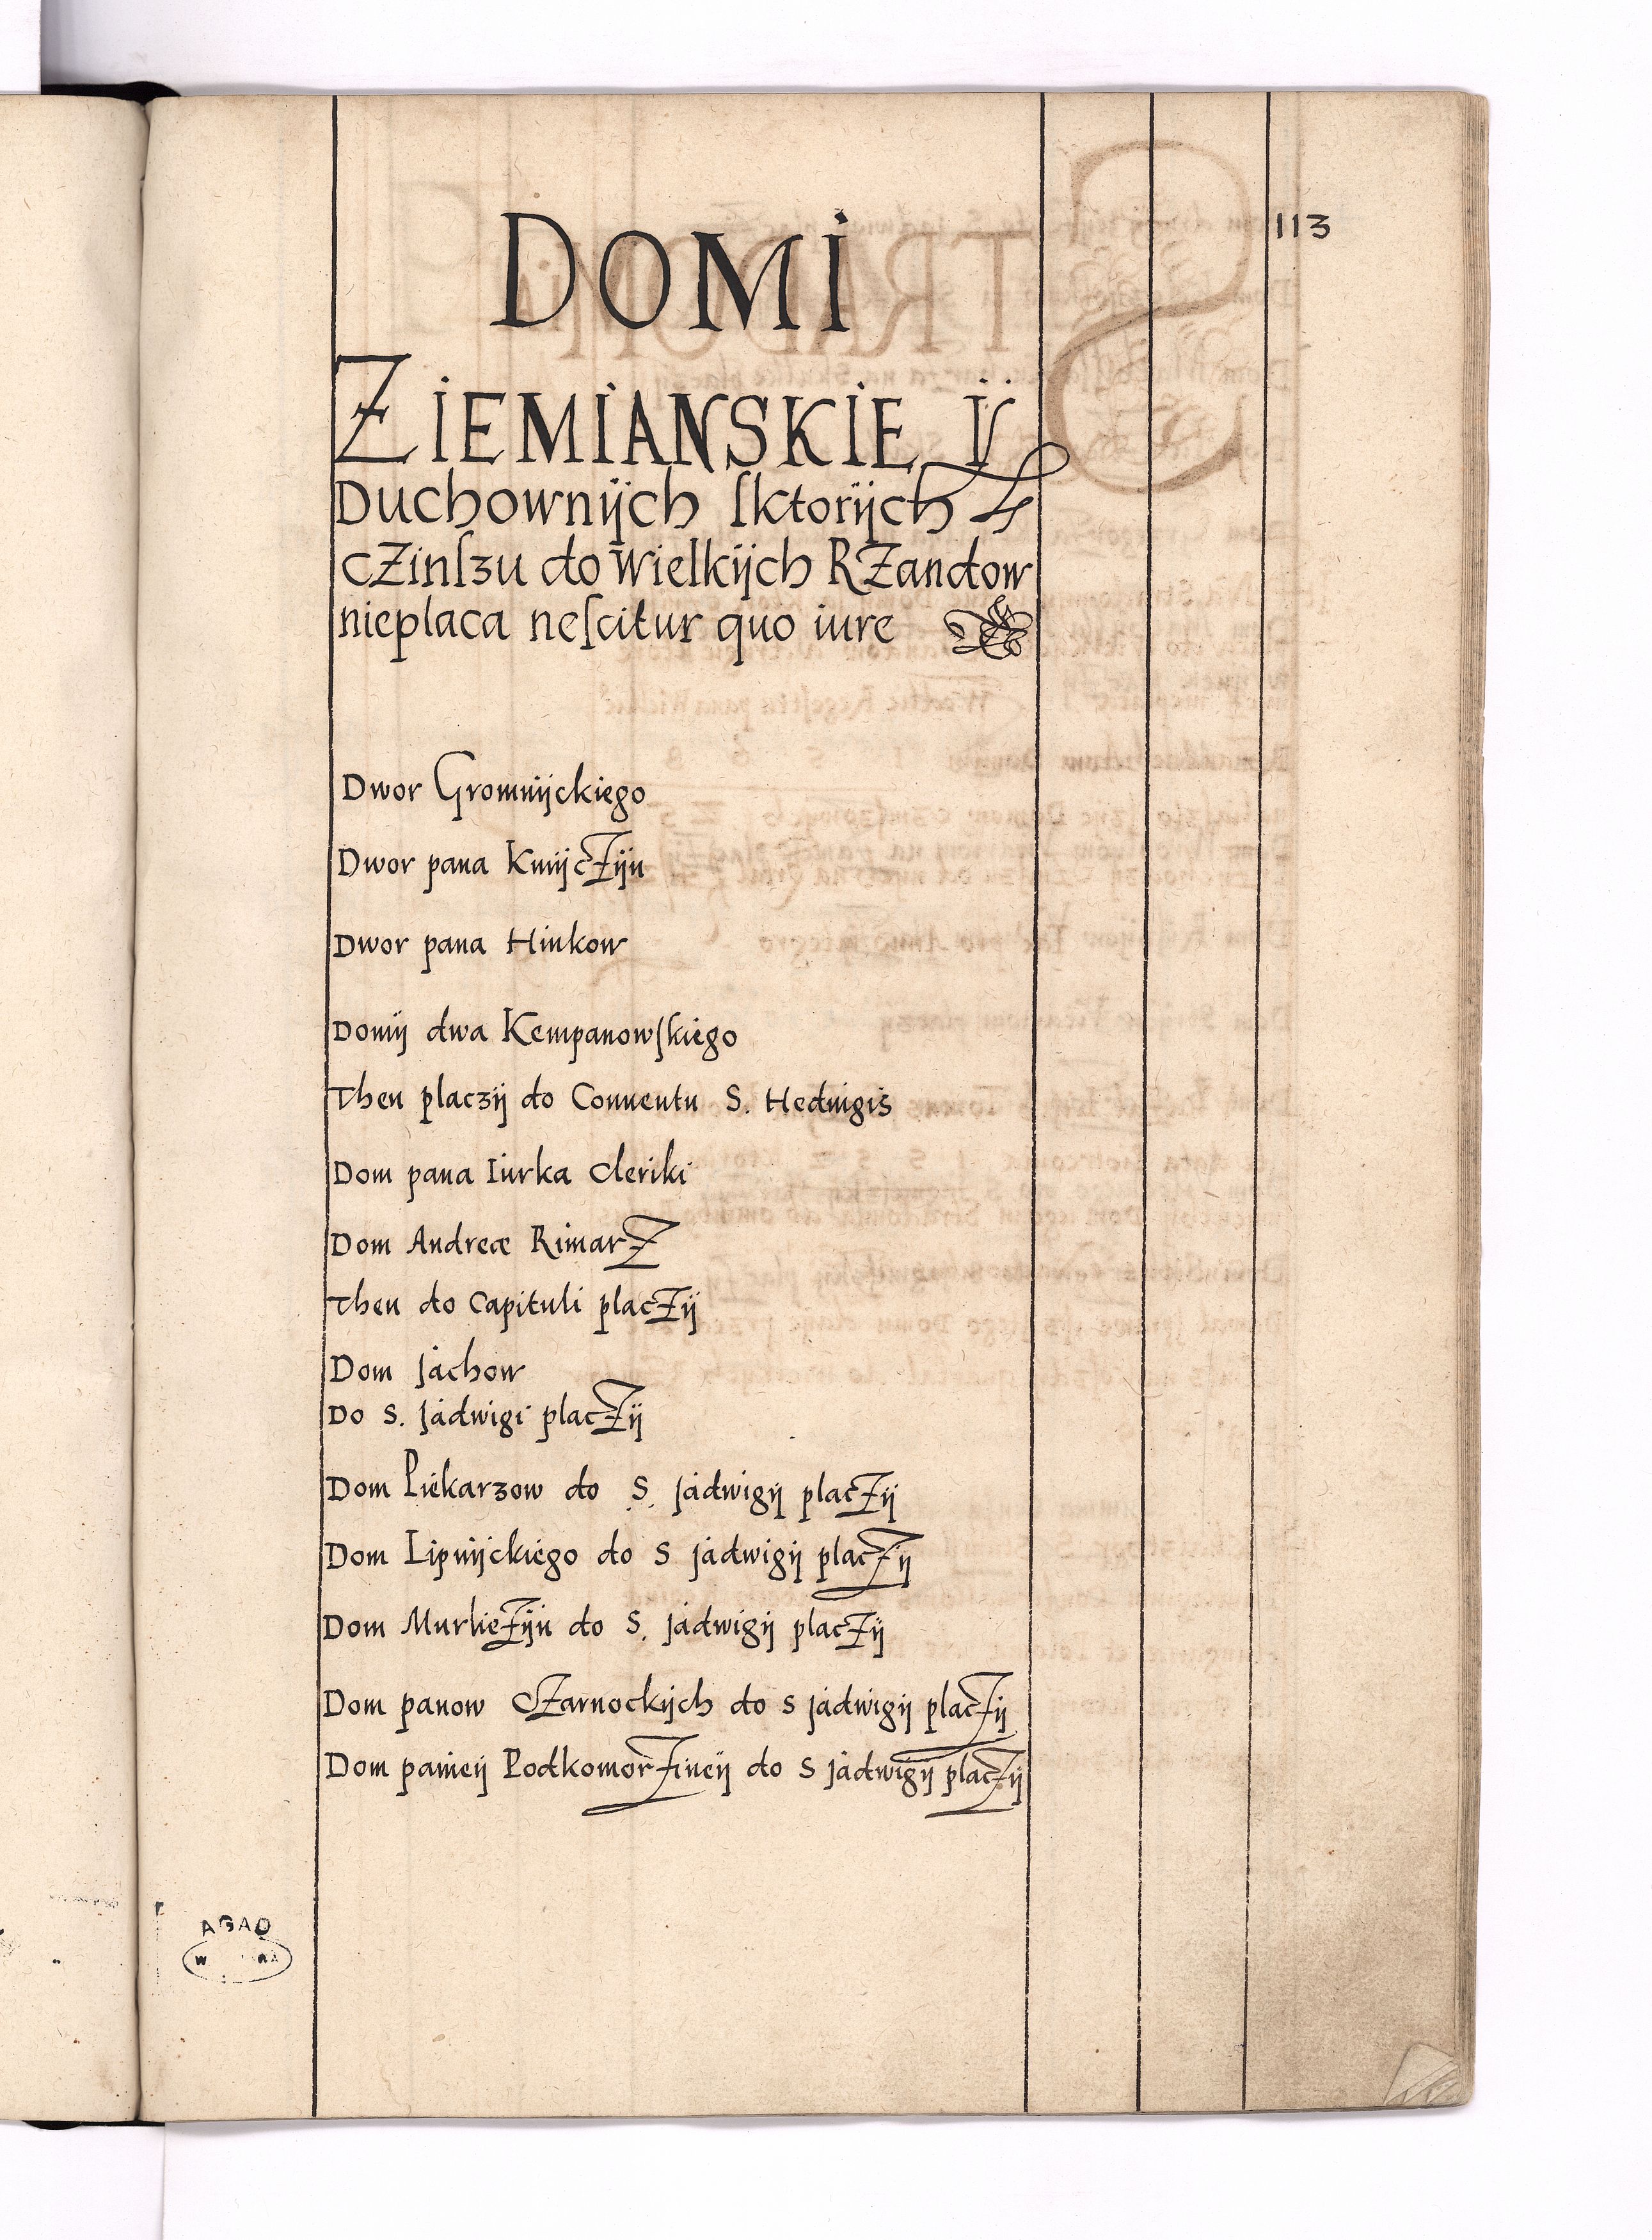 113
DOMI
ZIEMIANSKIE Ÿ
Duchownÿch ſktorÿch
cZinſzu do Wielkÿch RZandow
nieplaca neſcitur quo iure
Dwor Gromnÿckiego
Dwor pana KmÿcZÿn
Dwor pana Hinkow
Domÿ dwa Kempanowſkiego
Then placzÿ do Conuentu S. Hedwigis
Dom pana Iurka Cleriki
Dom Andreæ RimarZ
Then do Capituli placZÿ
Dom Jachow
Do S. Jadwigi placZÿ
Dom Piekarzow do S. Jadwigÿ placZÿ
Dom Lipnÿckiego do S Jadwigÿ placZÿ
Dom MurlieZÿn do S. Jadwigÿ placZÿ
Dom panow CZarnockÿch do S Jadwigÿ placZÿ
Dom panieÿ PodkomorZineÿ do S Jadwigÿ placZÿ
AGAD